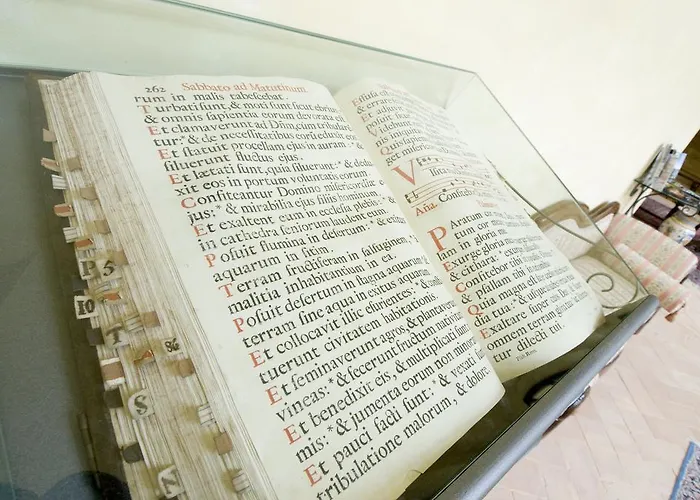 262 Sabbato ad Matutinum.
rum in malis tabeſcebat.
Turbati ſunt, & moti ſunt ſicut ebrius:
& omnis ſapientia eorum devorata eſt.
Et clamaverunt ad Dñm, cum tribularen
tur: * & de neceſſitatibus eorum eduxit eos.
Et ſtatuit procellam ejus in auram: * &
ſiluerunt fluctus ejus.
Et lætati ſunt, quia ſiluerunt: * & dedu
xit eos in portum voluntatis eorum.
Confiteantur Domino miſericordiæ e
jus: * & mirabilia ejus filiis hominum.
Et exaltent eum in eccleſia plebis: * &
in cathedra ſeniorum laudent eum.
Poſuit flumina in deſertum: * & exitus
aquarum in ſitim.
Terram fructiferam in ſalſuginem, * a
malitia inhabitantium in ea.
Poſuit deſertum in ſtagna aquarum: *
terram ſine aqua in exitus aquarum.
Et collocavit illic eſurientes: * & conſti
tuerunt civitatem habitationis.
Et ſeminaverunt agros, & plantaverunt
vineas: * & fecerunt fructum nativitatis.
Et benedixit eis, & multiplicati ſunt ni
mis: * & jumenta eorum non minoravit.
Et pauci facti ſunt: * & vexati ſunt a
tribulatione malorum, & dolore.
Effuſa eſt
& errare
Et adjuv
Videbunt
nis iniquit
Quis ſapi
get miſeri
Viſita
Aña. Confitebor
Paratum cor
tum cor me
lam in gloria me
Exurge gloria
& cithara: * exurg
Confitebor tibi
& pſallam tibi
Quia magna
dia tua: * &
Exaltare ſuper cœlos
omnem terram gloria
tur dilecti tui.
P 5
10
7
8
S
Z